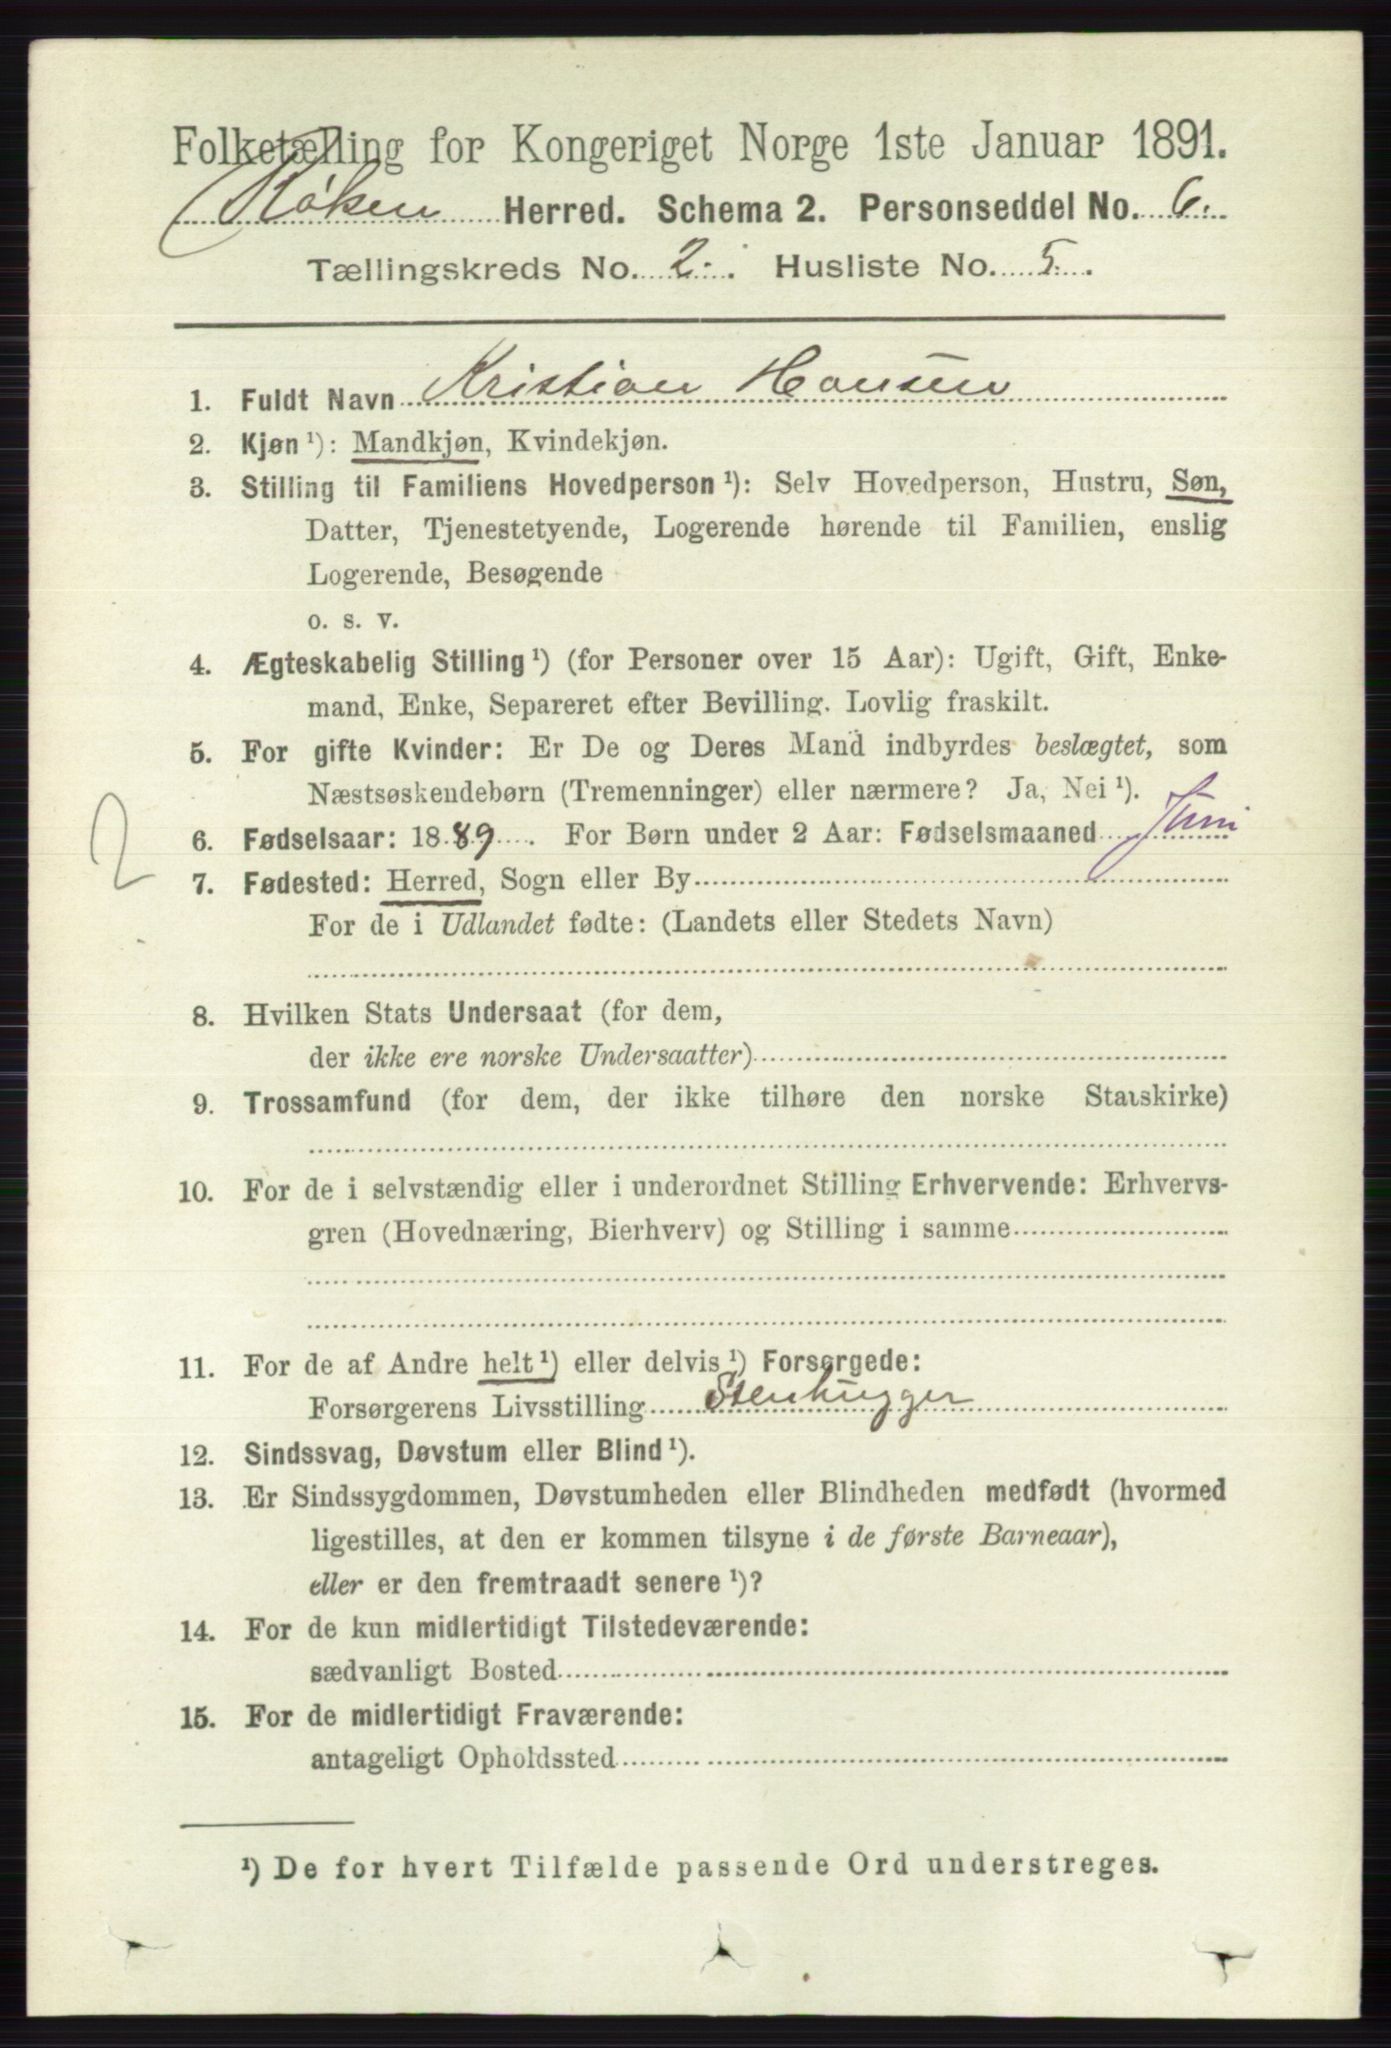 Folketælling for Kongeriget Norge 1ste Januar 1891.
Røken Herred. Schema 2. Personseddel No. 6.
Tællingskreds No. 2. Husliste No. 5.
1. Fuldt Navn Kristian Hansen
2. Kjøn ¹): Mandkjøn, Kvindekjøn.
3. Stilling til Familiens Hovedperson ¹): Selv Hovedperson, Hustru, Søn,
Datter, Tjenestetyende, Logerende hørende til Familien, enslig
Logerende, Besøgende
o. s. v.
4. Ægteskabelig Stilling ¹) (for Personer over 15 Aar): Ugift, Gift, Enke-
mand, Enke, Separeret efter Bevilling. Lovlig fraskilt.
5. For gifte Kvinder: Er De og Deres Mand indbyrdes beslægtet, som
Næstsøskendebørn (Tremenninger) eller nærmere? Ja, Nei ¹).
2
6. Fødselsaar: 1889. For Børn under 2 Aar: Fødselsmaaned Juni
7. Fødested: Herred, Sogn eller By
For de i Udlandet fødte: (Landets eller Stedets Navn)
8. Hvilken Stats Undersaat (for dem,
der ikke ere norske Undersaatter)
9. Trossamfund (for dem, der ikke tilhøre den norske Statskirke)
10. For de i selvstændig eller i underordnet Stilling Erhvervende: Erhvervs-
gren (Hovednæring, Bierhverv) og Stilling i samme
11. For de af Andre helt ¹) eller delvis ¹) Forsørgede:
Forsørgerens Livsstilling Stenhugger
12. Sindssvag, Døvstum eller Blind ¹).
13. Er Sindssygdommen, Døvstumheden eller Blindheden medfødt (hvormed
ligestilles, at den er kommen tilsyne i de første Barneaar),
eller er den fremtraadt senere ¹)?
14. For de kun midlertidigt Tilstedeværende:
sædvanligt Bosted
15. For de midlertidigt Fraværende:
antageligt Opholdssted
¹) De for hvert Tilfælde passende Ord understreges.